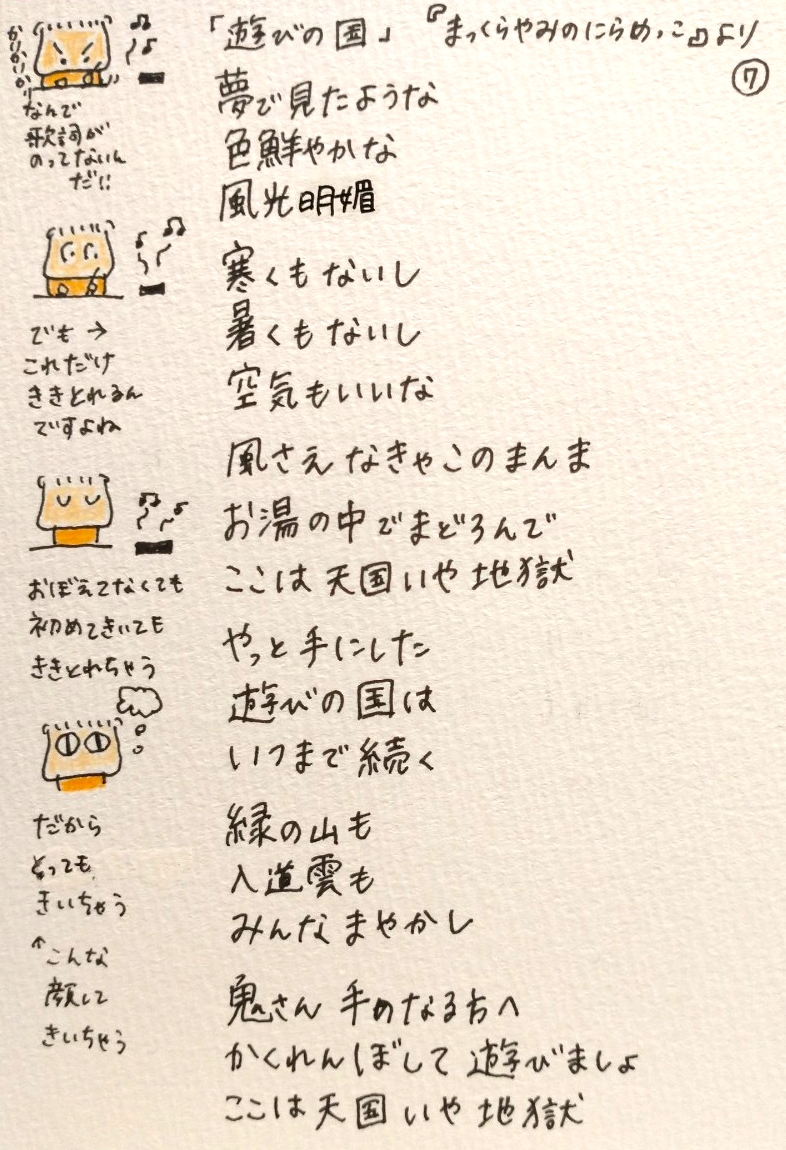 「遊びの国」 『まっくらやみのにらめっこ』より
⑦
夢で見たような
色鮮やかな
風光明媚
寒くもないし
暑くもないし
空気もいいな
風さえなきゃこのまんま
お湯の中でまどろんで
ここは天国いや地獄
やっと手にした
遊びの国は
いつまで続く
緑の山も
入道雲も
みんなまやかし
鬼さん手めなる方へ
かくれんぼして遊びましょ
ここは天国いや地獄
かりかりかり
なんで
歌詞が
のってないん
だ!!
でも→
これだけ
ききとれるん
ですよね
おぼえてなくても
初めてきいても
ききとれちゃう
だから
とっても
きいちゃう
↑こんな
顔して
きいちゃう